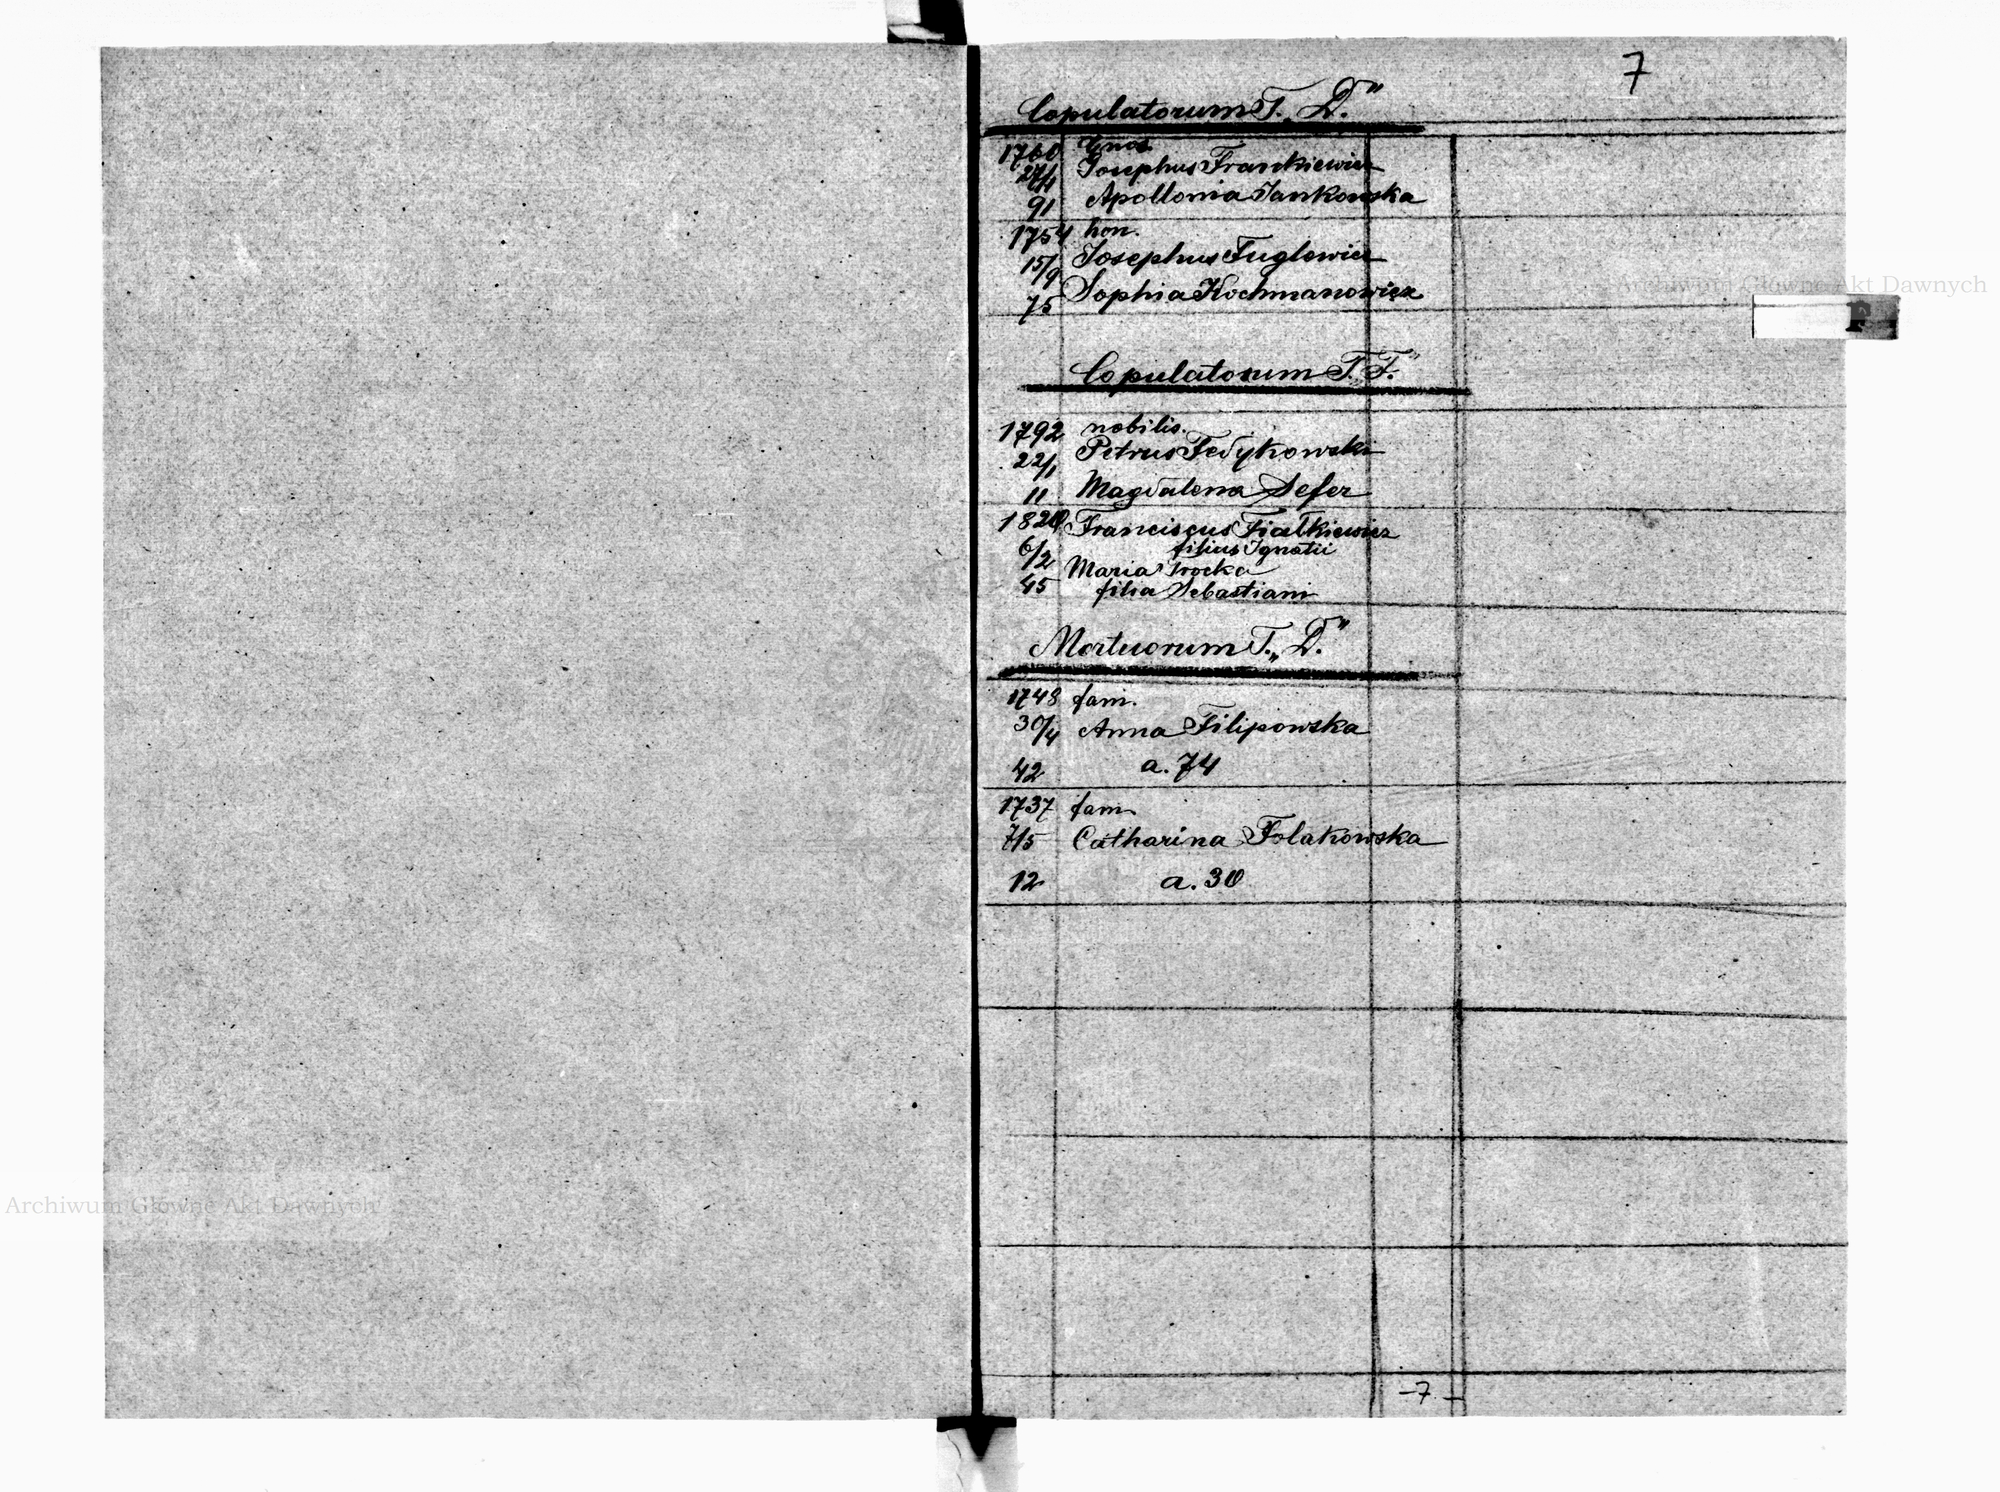 7
Copulatorum T. „D."
1760 Gnos
27/1 Josephus Frankiewicz
91 Apollonia Jankowska
1754 hon.
15/9 Josephus Fuglewicz
75 Sophia Kochmanowicz
Archiwum Główne Akt Dawnych
F
Copulatorum T. F."
1792 nobilis.
22/1 Petrus Fedykowski
11 Magdalena Sefer
1820 Franciscus Fiałkiewicz
filius Ignatii
6/2 Maria
45 filia Sebastiani
Mortuorum T. „D."
1748 fam.
30/4 Anna Filipowska
42 a. 74
1737 fam.
7/5 Catharina Folakowska
12 a. 30
Archiwum Główne Akt Dawnych
-7-